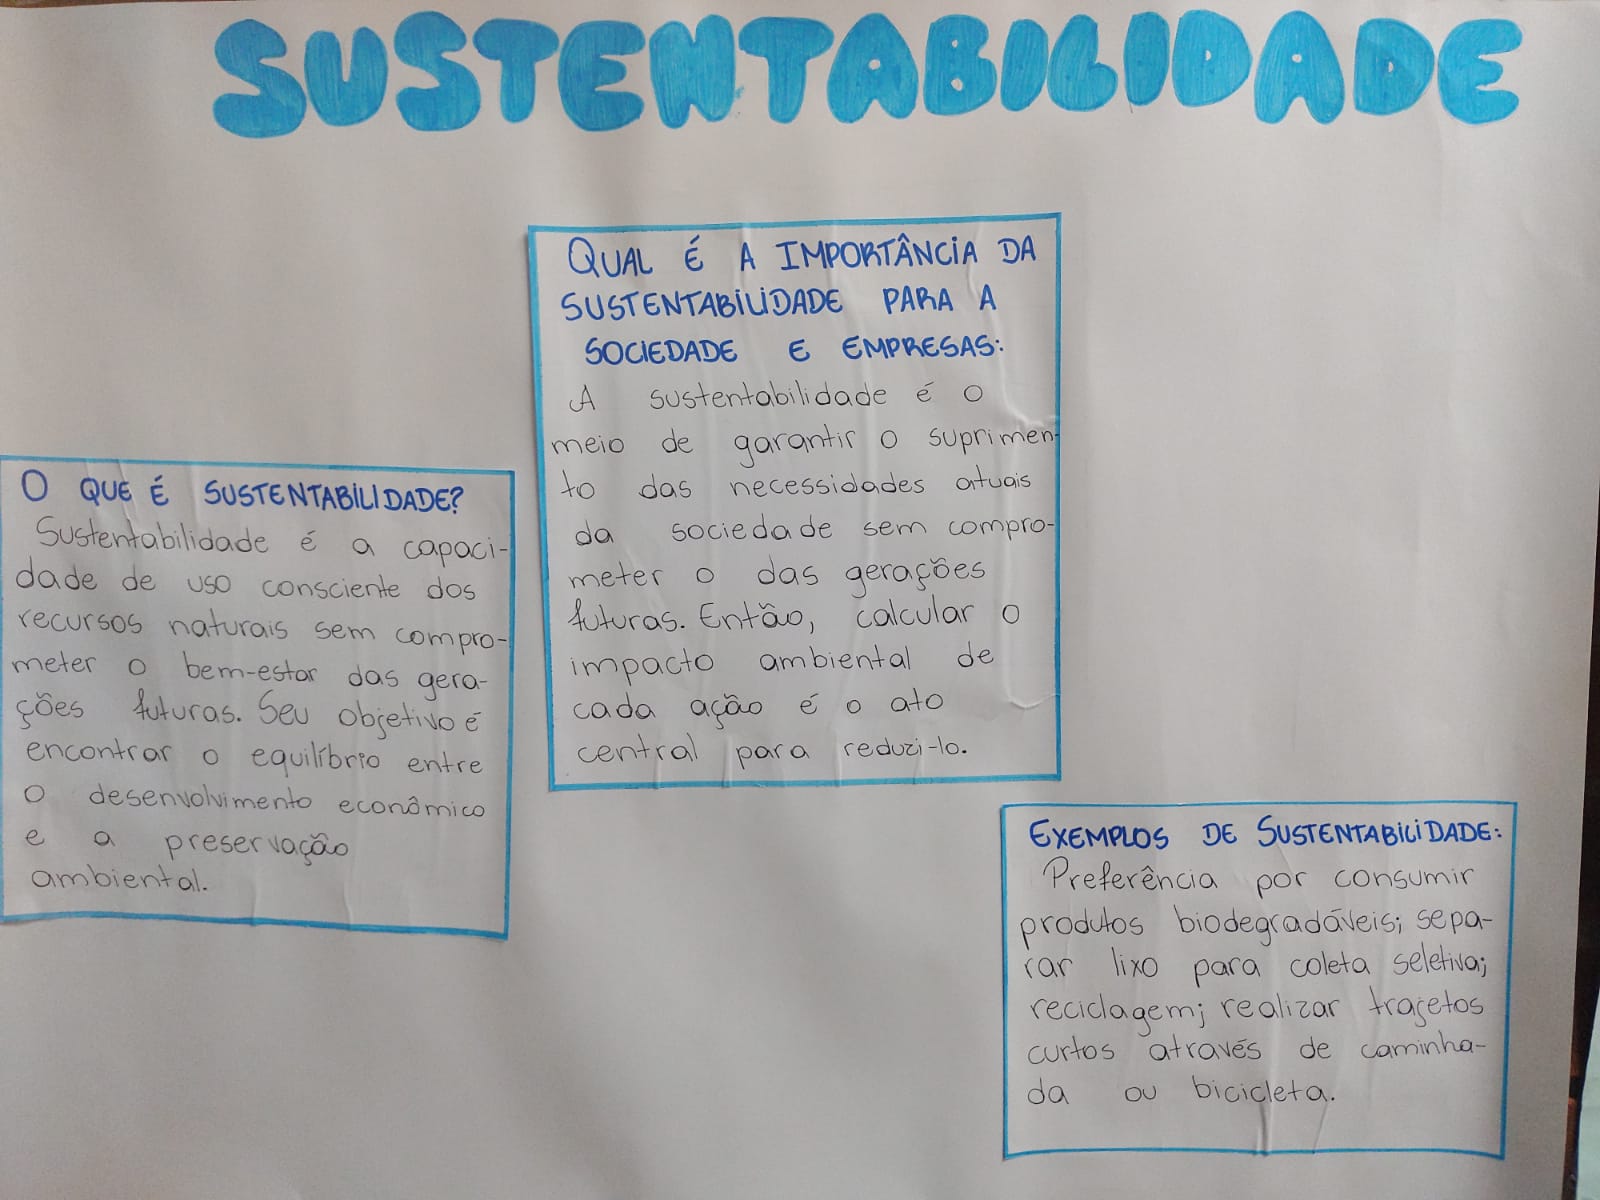 SUSTENTABILIDADE
O QUE É SUSTENTABILIDADE?
Sustentabilidade é a capaci-
dade de uso consciente dos
recursos naturais sem compro-
meter o bem-estar das gera-
ções futuras. Seu objetivo é
encontrar o equilíbrio entre
o desenvolvimento econômico
e a preservação
ambiental.
QUAL É A IMPORTÂNCIA DA
SUSTENTABILIDADE PARA A
SOCIEDADE E EMPRESAS:
A sustentabilidade é o
meio de garantir o suprimen-
to das necessidades atuais
da sociedade sem compro-
meter o das gerações
futuras. Então, calcular o
impacto ambiental de
cada ação é o ato
central para reduzi-lo.
EXEMPLOS DE SUSTENTABILIDADE:
Preferência por consumir
produtos biodegradáveis; sepa-
rar lixo para coleta seletiva;
reciclagem; realizar trajetos
curtos através de caminha-
da ou bicicleta.